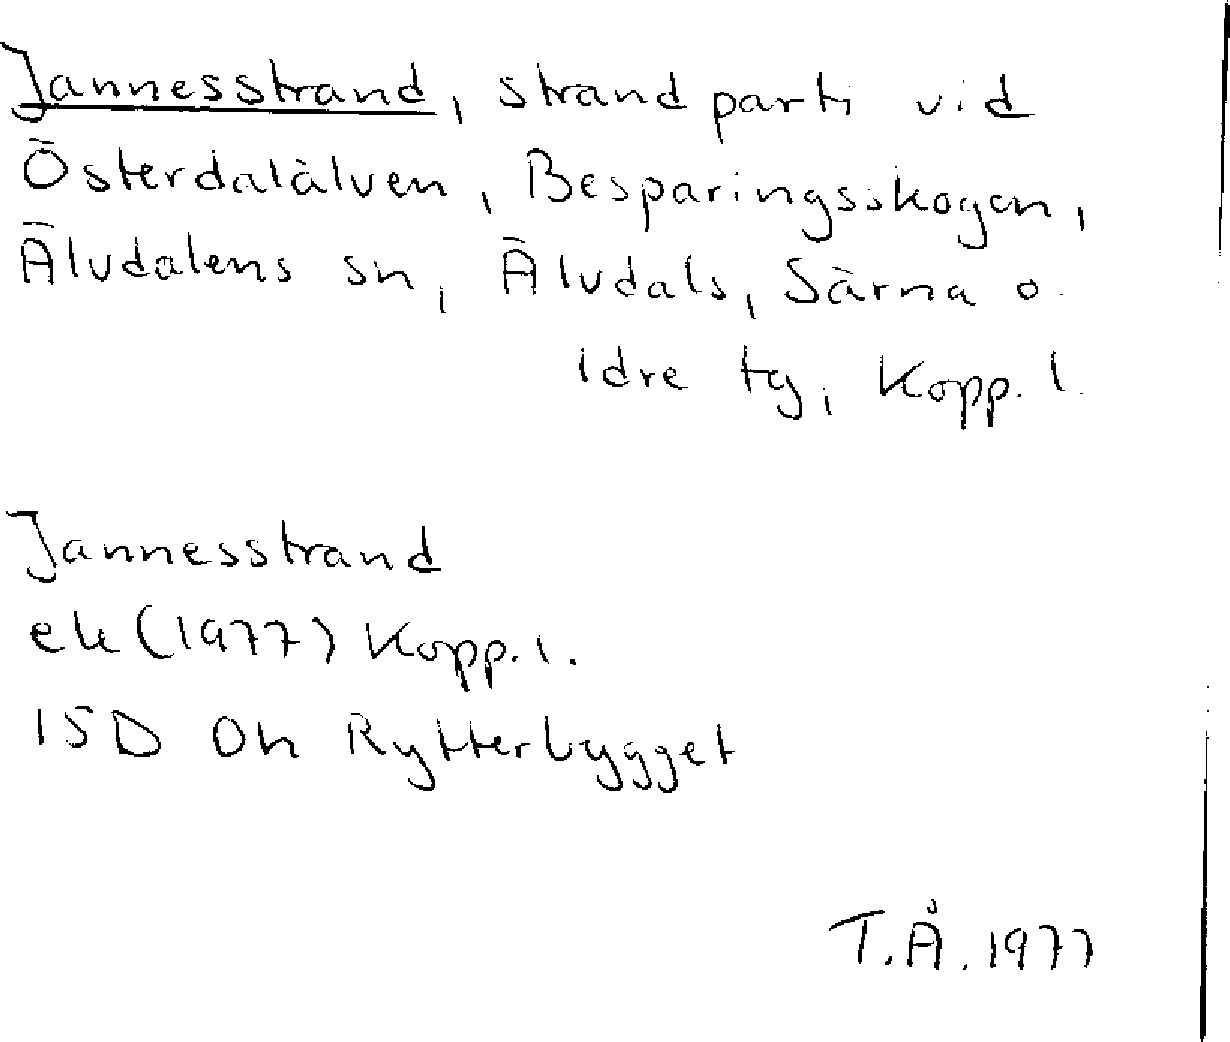 Jannesstrand, strandparti vid
Österdalälven, Besparingsskogen,
Älvdalens sn, Älvdals, Särna o.
Idre tg, Kopp. l.
Jannesstrand
ek (1977) Kopp. l.
15D Oh Rytterbygget
T.Å. 1977